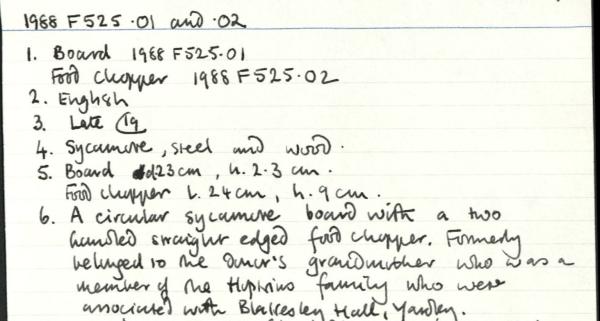 1988 F525.01 and .02
1. Board 1988 F525.01
Food Chopper 1988 F525.02
2. English
3. Late 19
4. Sycamore, steel and wood.
5. Board d23cm, h. 2.3 cm.
Food chopper L. 24cm, h. 9cm.
6. A circular sycamore board with a two
handled straight edged food chopper. Formerly
belonged to the Donor's grandmother who was a
member of the Hopkins family who were
associated with Blakesley Hall, Yardley.